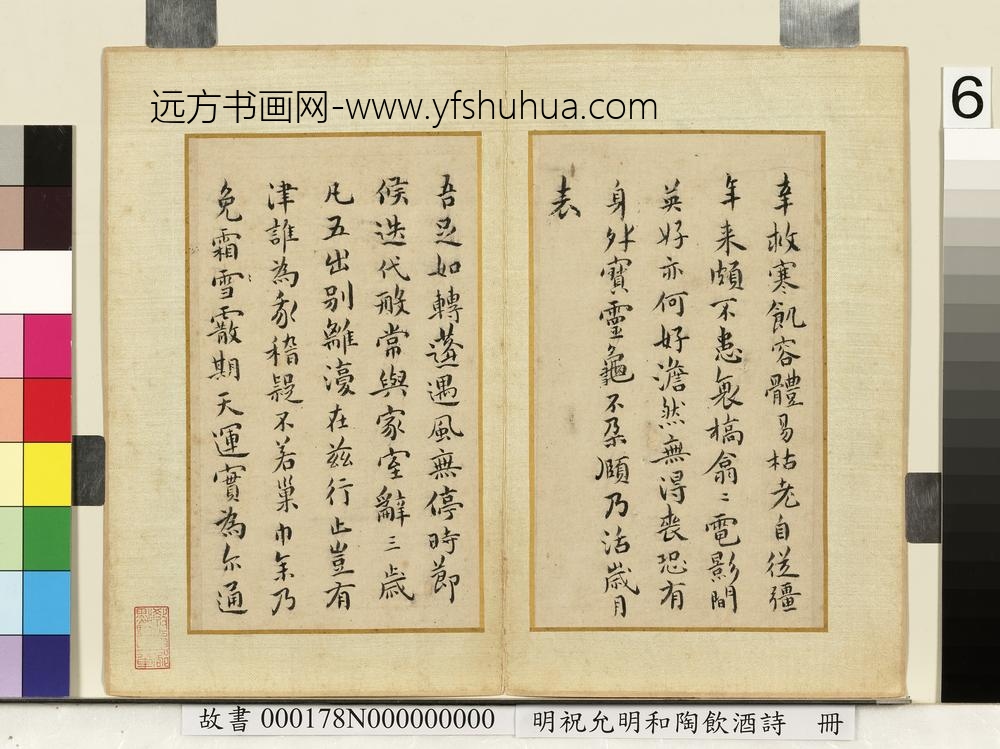 远方书画网-www.yfshuhua.com
6
辛救寒飢容體易枯老自從彊
年来頗不患衰槁翕〻電影間
英好亦何好澹然無得喪恐有
身外寶靈龜不朶頤乃活歲月
表
吾足如轉蓬遇風無停時節
候迭代般常與家室辭三歲
凡五出別離濅在兹行止豈有
津誰為稽疑不若巢巾年乃
免霜雪霰期天運實為尓通
故書 000178N000000000
明祝允明和陶飲酒詩 冊